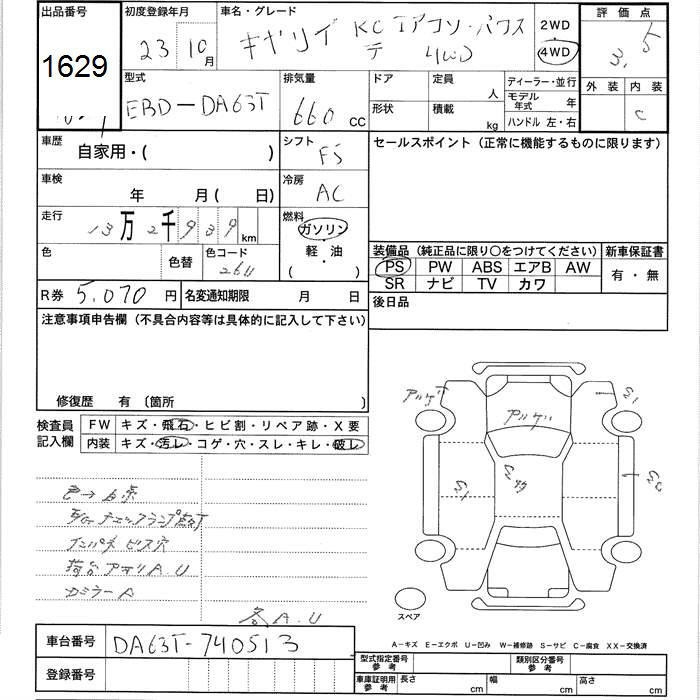 出品番号
1629
初度登録年月
23 10月
車名・グレード
キヤリイ KCエアコン・パワステ 4WD
2WD
4WD
評価点
3.5
外装 内装
C
型式
EBD-DA63T
排気量
660 CC
ドア
形状
定員 人
積載 kg
ディーラー・並行
モデル年式 年
ハンドル 左・右
車歴
自家用・( )
シフト
F5
セールスポイント(正常に機能するものに限ります)
車検
年 月( 日)
冷房
AC
走行
13万2千939km
燃料
ガソリン・軽・油
( )
色
色替
色コード
26U
装備品(純正品に限り○をつけてください)
PS PW ABS エアB AW
SR ナビ TV カワ
新車保証書
有・無
R券 5,070円
名変通知期限 月 日
後日品
注意事項申告欄(不具合内容等は具体的に記入して下さい)
修復歴 有 〔箇所 〕
検査員記入欄
FW キズ・飛石・ヒビ割・リペア跡・X要
内装 キズ・汚レ・コゲ・穴・スレ・キレ・破レ
チェックランプ点灯
インパネビス穴
荷台アオリA.U
DミラーA
各A.U
スペア
A-キズ E-エクボ U-凹み W-補修跡 S-サビ C-腐食 XX-交換済
車台番号 DA63T-740513
登録番号
型式指定番号 参考
類別区分番号 参考
車庫証明用 参考 長さ cm 幅 cm 高さ cm